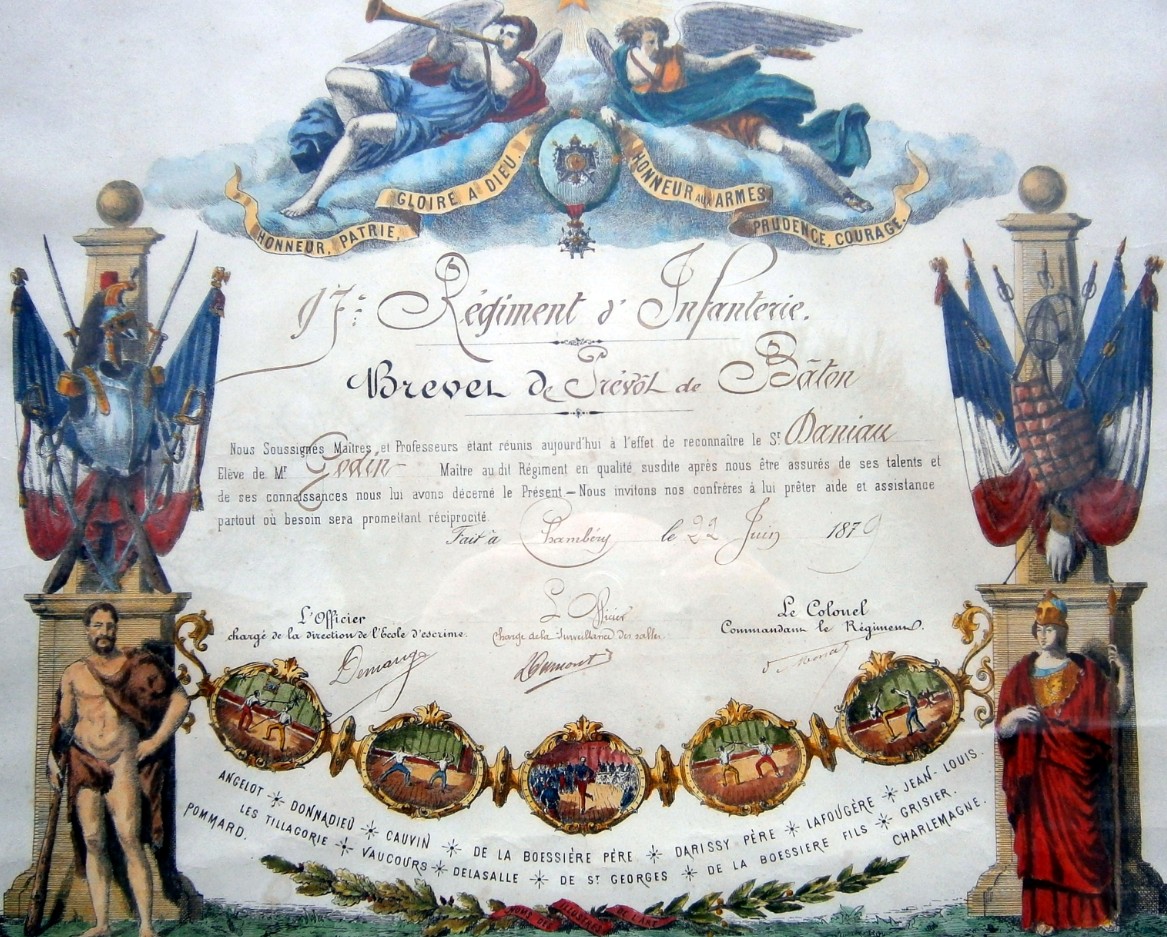 GLOIRE A DIEU.
HONNEUR AUX ARMES
HONNEUR, PATRIE,
PRUDENCE, COURAGE
97e Régiment d'Infanterie.
Brevet de Prévôt de Bâton
Nous Soussignés Maîtres et Professeurs étant réunis aujourd'hui à l'effet de reconnaître le Sr Daniau
Elève de Mr Godin Maitre au dit Régiment en qualité susdite après nous être assurés de ses talents et
de ses connaissances nous lui avons décerné le Présent – Nous invitons nos confrères à lui prêter aide et assistance
partout où besoin sera promettant réciprocité.
Fait à Chambéry le 22 Juin 1879
L'Officier
chargé de la direction de l'École d'escrime.
L'Officier
Chargé de la Surveillance des salles
Le Colonel
Commandant le Régiment.
Demange
ANGELOT * DONNADIEU * CAUVIN * DE LA BOESSIÈRE PÈRE * DARISSY PÈRE * LAFOUGÈRE * JEAN-LOUIS.
LES TILLACORIE * VAUCOURS * DELASALLE * DE ST GEORGES * DE LA BOESSIERE FILS * GRISIER.
POMMARD.
CHARLEMAGNE.
NOMS DES ILLUSTRES DE L'ART